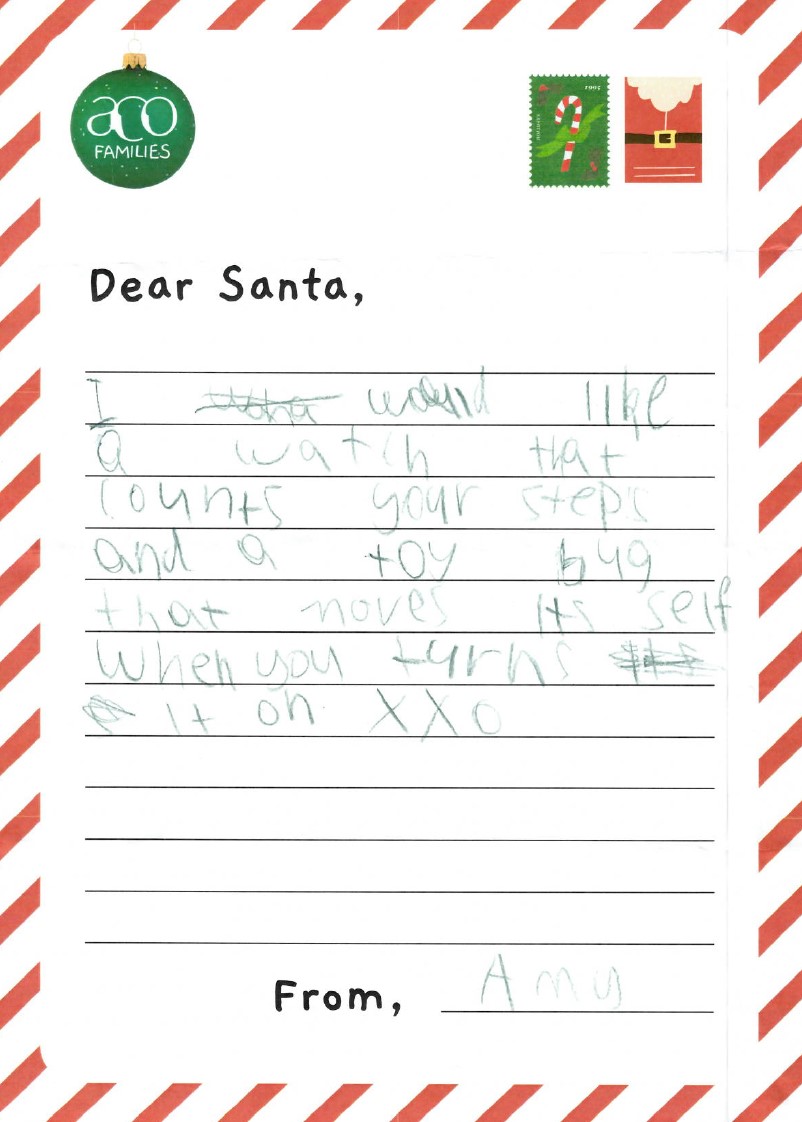 aco
FAMILIES
1995
Dear Santa,
I would like
a watch that
counts your steps
and a toy bug
that moves its self
when you turns
it on XXO
From, Amy